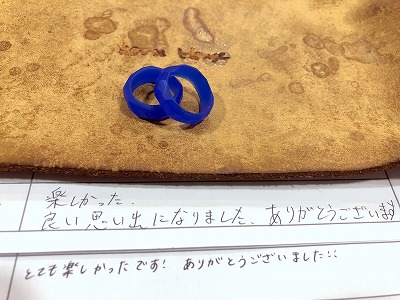 楽しかった.
良い思い出になりました、ありがとうございます
とても楽しかったです! ありがとうございました!!